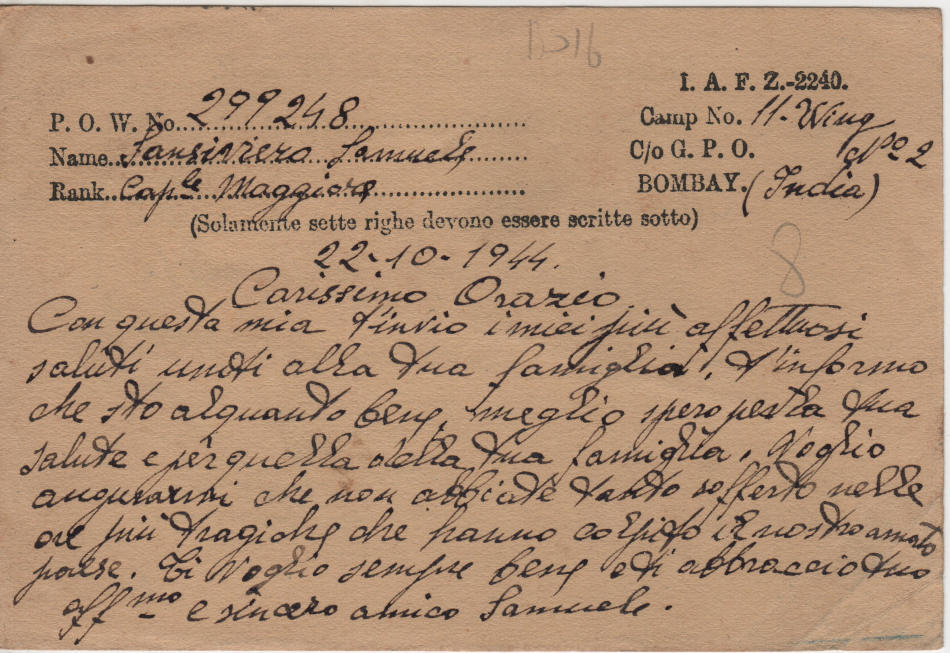 I. A. F. Z.-2240.
P. O. W. No. 299248
Camp No. 11- Wing
Name Samuele
C/o G. P. O. N° 2
Rank Cap.le Maggiore
BOMBAY. (India)
(Solamente sette righe devono essere scritte sotto)
22-10-1944.
Carissimo Orazio
Con questa mia t'invio i miei più affettuosi
saluti uniti alla tua famiglia, t'informo
che sto alquanto bene, meglio spero per la tua
salute e per quella della tua famiglia. Voglio
augurarmi che non abbiate tanto sofferto nelle
ore più tragiche che hanno colpito il nostro amato
paese. Ti voglio sempre bene e ti abbraccio tuo
aff.mo e sincero amico Samuele.
8